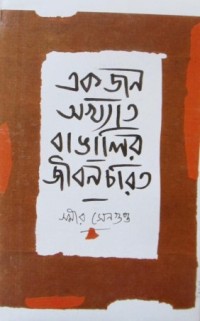 একজন
অখ্যাত
বাঙালির
জীবনচরিত
সমীর সেনগুপ্ত